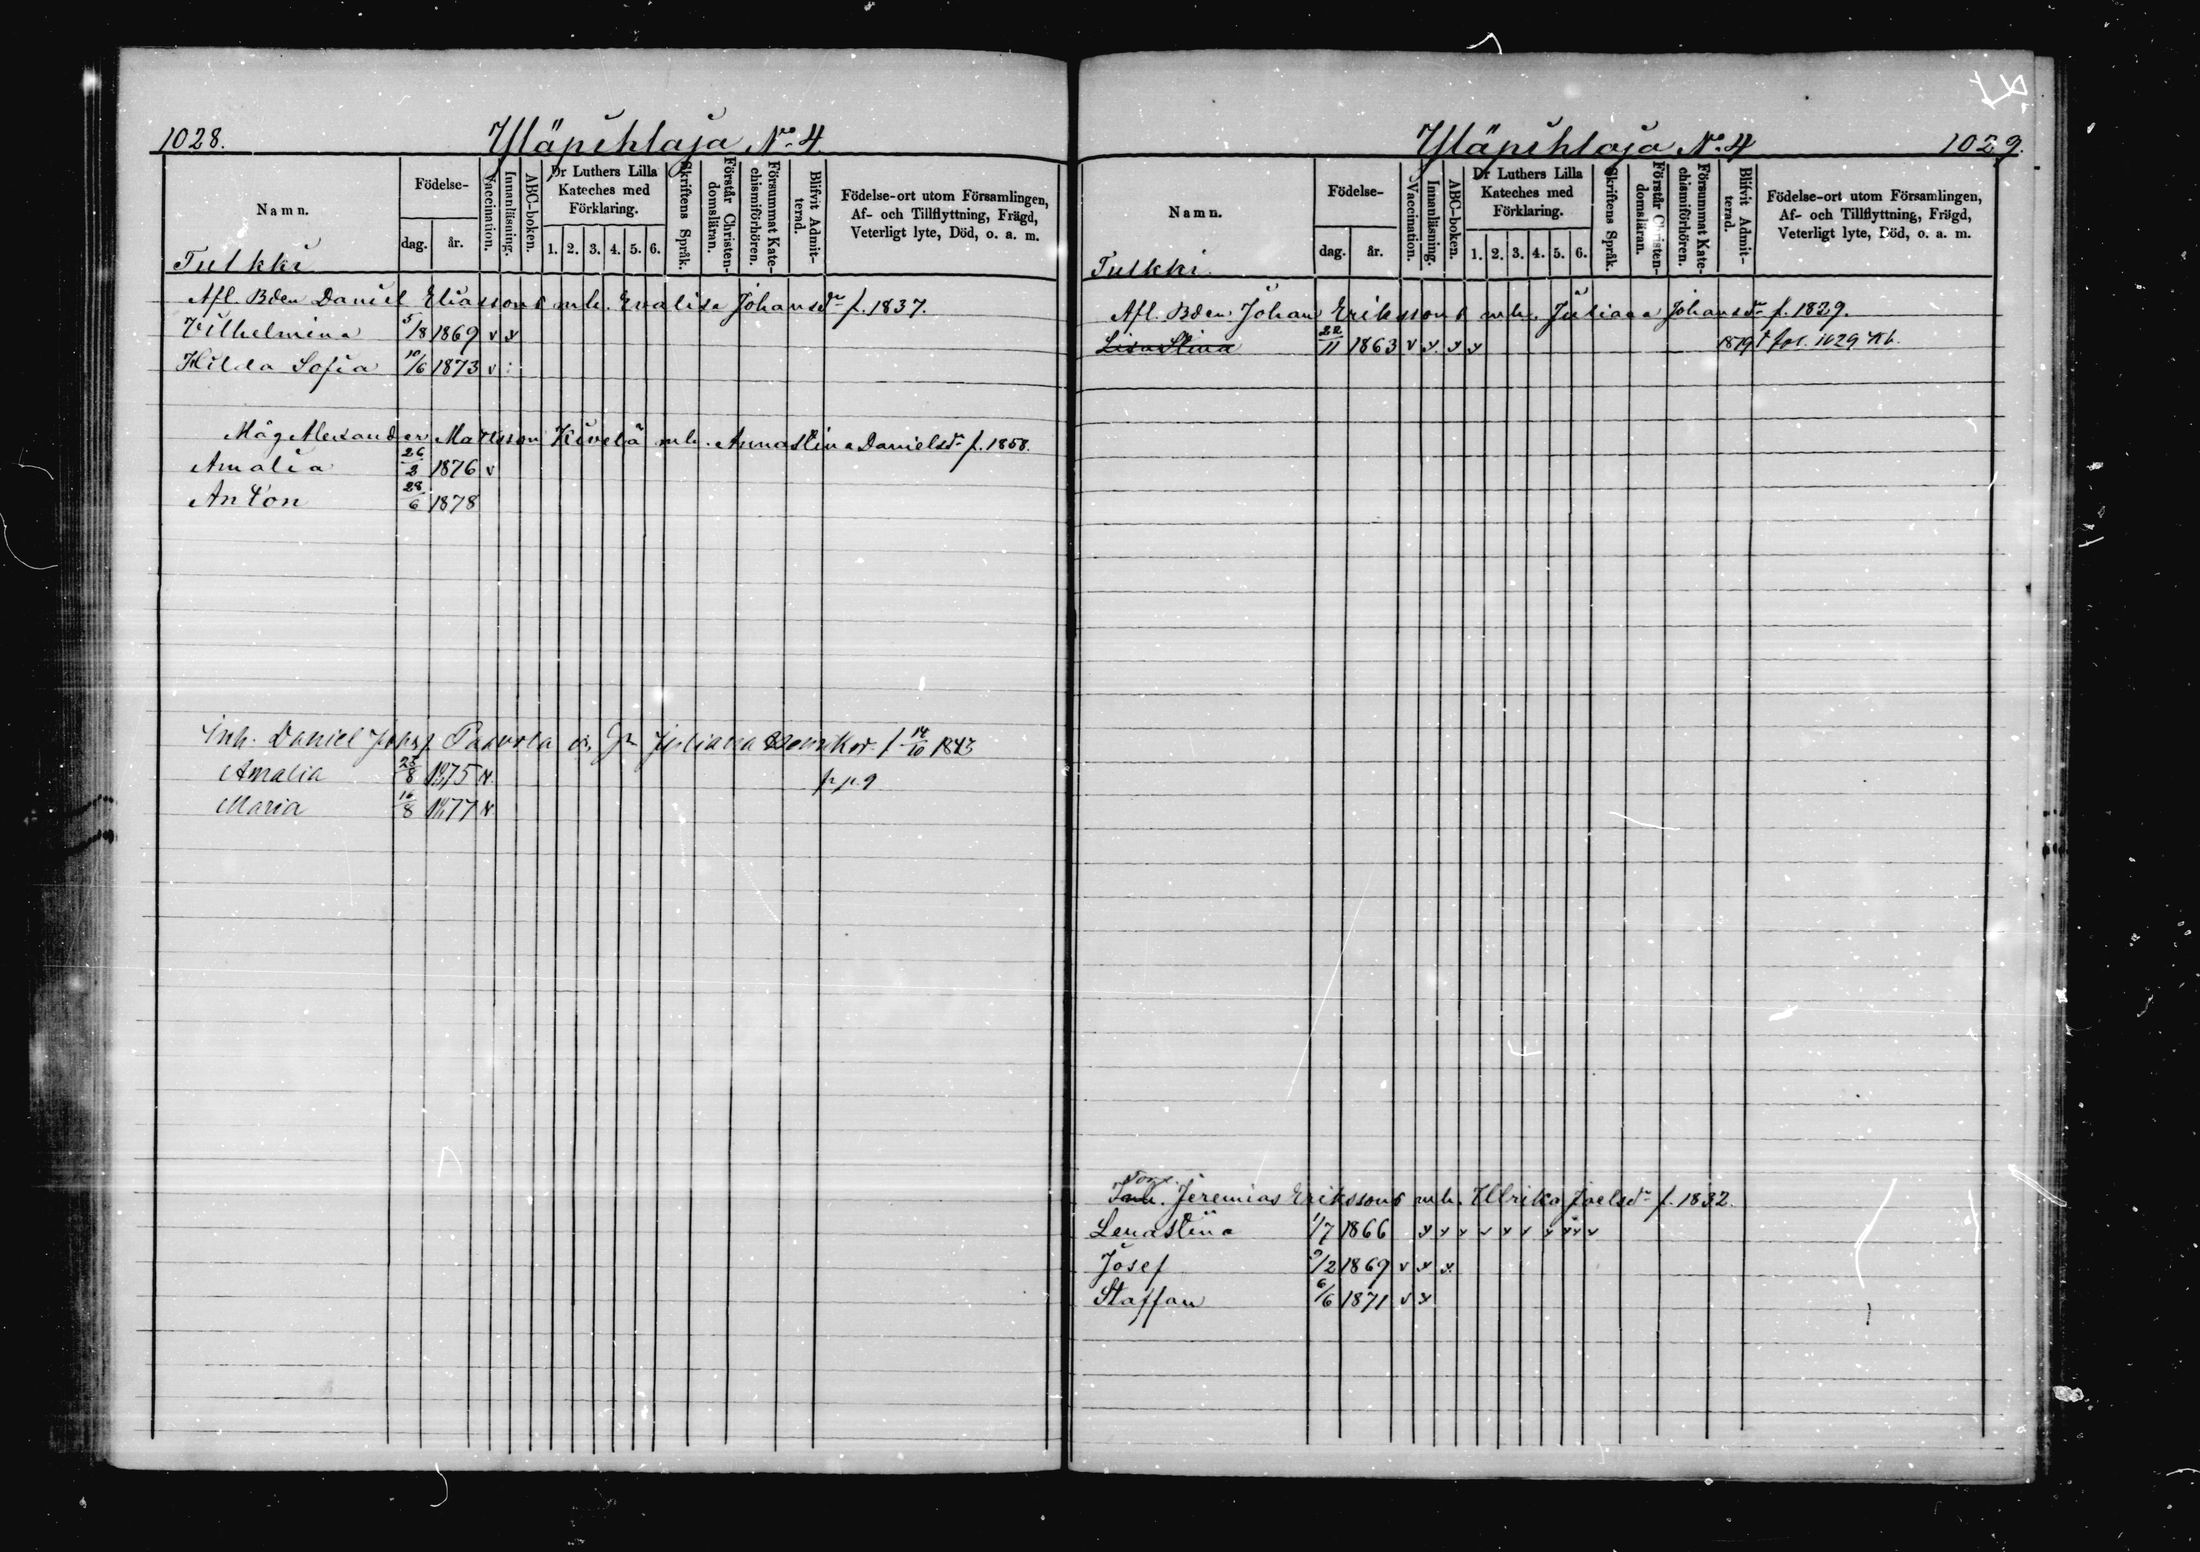 1028.
Yläpihlaja No 4
Namn.
Födelse-
dag.
år.
Vaccination.
Innanläsning.
ABC-boken.
Dr Luthers Lilla
Kateches med
Förklaring.
1. 2. 3. 4. 5. 6.
Skriftens Språk.
Förstår Christen-
domsläran.
Försummat Kate-
chismiförhören.
Blifvit Admit-
terad.
Födelse-ort utom Församlingen,
Af- och Tillflyttning, Frägd,
Veterligt lyte, Död, o. a. m.
Tulkki
Afl. Bden Daniel Eliassons enk. Evalisa Johansdr f. 1837.
Vilhelmina 5/8 1869 v v
Hilda Sofia 10/6 1873 v :
Måg Alexander Matsson Kivelä enk. Annastina Danielsdr f. 1858.
Amalia 26/2 1876 v
Anton 28/6 1878
Inh. Daniel Johs. Paavola Juliana f 14/10 1843
Amalia 23/8 1875 v. p. p. 9
Maria 16/8 1877 v.
Yläpihlaja No 4
1029.
Namn.
Födelse-
dag.
år.
Vaccination.
Innanläsning.
ABC-boken.
Dr Luthers Lilla
Kateches med
Förklaring.
1. 2. 3. 4. 5. 6.
Skriftens Språk.
Förstår Christen-
domsläran.
Försummat Kate-
chismiförhören.
Blifvit Admit-
terad.
Födelse-ort utom Församlingen,
Af- och Tillflyttning, Frägd,
Veterligt lyte, Död, o. a. m.
Tulkki
Afl. Bden Johan Erikssons enk. Juliana Johansdr f. 1829.
Lisa Stina 22/11 1863 v v v v 1879 t fol. 1029 Kb.
Torp.
Inh. Jeremias Erikssons enk. Ullrika Joelsdr f. 1832.
Lenastina 1/7 1866 v v v v v v v v v v
Josef 9/2 1869 v v v
Staffan 6/6 1871 v v